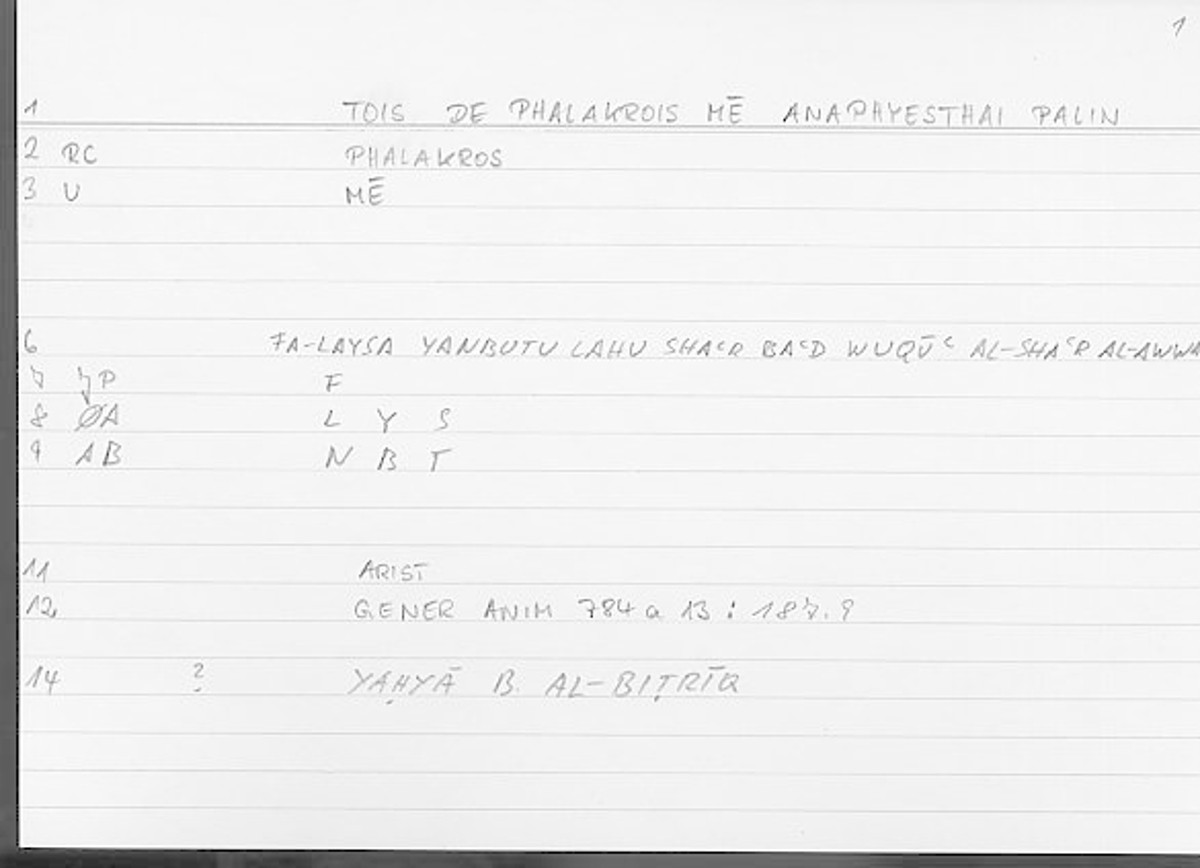 1
1 TOIS DE PHALAKROIS MĒ ANAPHYESTHAI PALIN
2 RC PHALAKROS
3 U MĒ
6 FA-LAYSA YANBUTU LAHU SHAʿR BAʿD WUQŪʿ AL-SHAʿR AL-AWWA
7 7P F
8 ØA L Y S
9 AB N B T
11 ARIST
12 GENER ANIM 784 a 13 : 187.9
14 ? YAḤYĀ B. AL-BIṬRĪQ